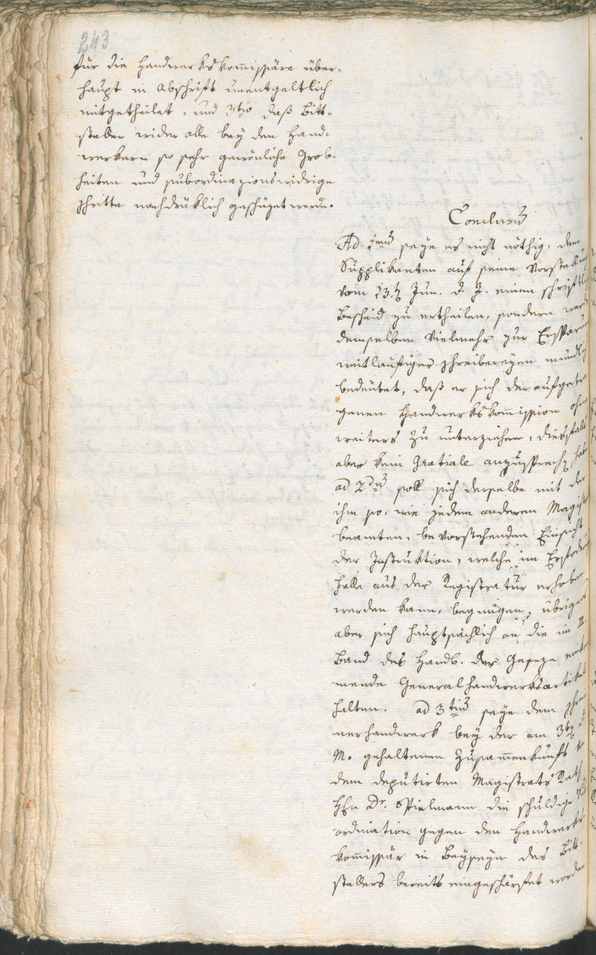 243
für die Handwerkskommissäre über-
haupt in Abschrift unentgeltlich
mitgetheilet, und 3tio daß Bitt-
steller wider alle bey den Hand-
werkern so sehr gewönliche Grob-
heiten und subordinazionswidrige
Schritte nachdrüklich geschüzet werde.
Conclusum
Ad 1mum seye es nicht nöthig, dem
Supplikanten auf seine Vorstellung
vom 13.t Jun. d. J. einen schriftl
Bescheid zu ertheilen, sondern
demselben vielmehr zur Ersparung
weitläufiger Schreibereyen mündlich
bedeutet, daß er sich der aufgetra
genen Handwerkskommission ohne
weiters zu unterziehen, diesfalls
aber kein Gratiale anzusprechen habe
ad 2dum soll sich derselbe mit der
ihm so, wie jedem anderen Magist
beamten, bevorstehenden Einsicht
der Instruktion, welche im Erforder
falle aus der Registratur erhoben
werden kann, begnügen, übrigens
aber sich hauptsächlich an die im II
Band des Handb. der Geseze
mende Generalhandwerksartikel
halten. ad 3tium seye dem Schrei
nerhandwerk bey der am 3t
M. gehaltenen Zusammenkunft
dem deputirten Magistrats Rath
Hhn Dr. Spielmann die schuldige
ordination gegen den Handwerks
kommissär in Beyseyn des Bitt-
stellers bereits eingeschärfet worden